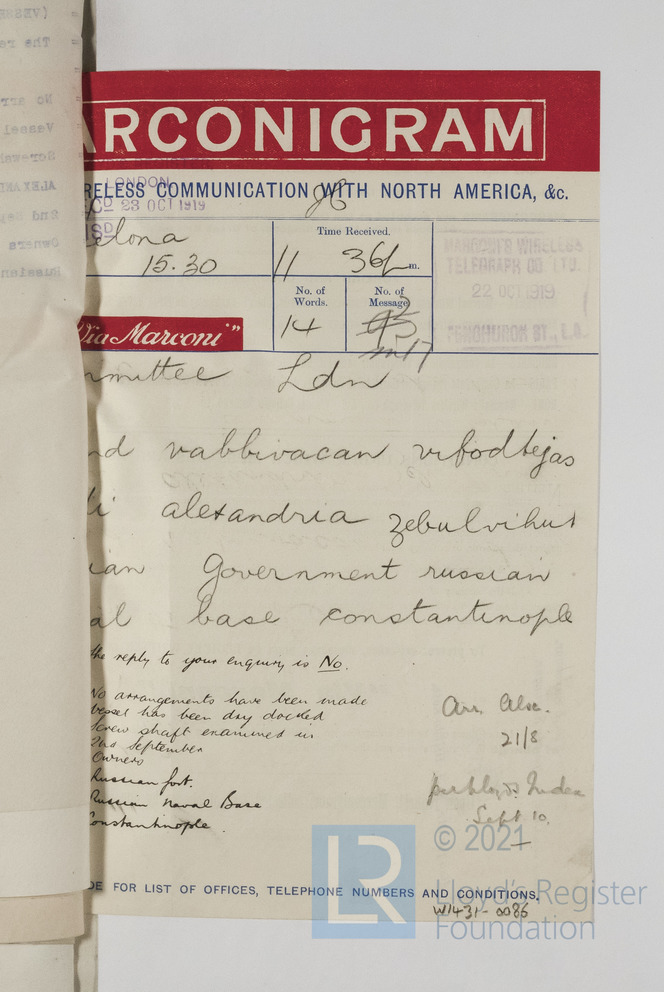 ARCONIGRAM
RELESS COMMUNICATION WITH NORTH AMERICA, &c.
LONDON
23 OCT 1919
elona
15.30
Time Received.
11 36 m.
MARCONI'S WIRELESS
TELEGRAPH CO LTD.
22 OCT 1919
No. of Words.
14
No. of Message
m17
Via Marconi"
mmittee Ldn
nd vabbivacan vifodtejas
di alexandria zebulvihut
ian Government russian
al base constantinople
the reply to your enquiry is No.
No arrangements have been made
Vessel has been dry docked
Screw shaft examined in
2nd September
Owners
Russian Govt.
Russian Naval Base
Constantinople.
Arr. Alex.
21/8
Index
Sept 10.
DE FOR LIST OF OFFICES, TELEPHONE NUMBERS AND CONDITIONS.
W1431-0086
© 2021
LR
Lloyd's Register
Foundation